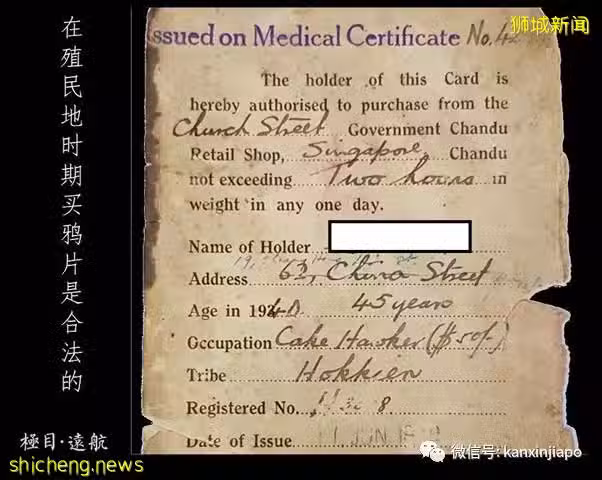 狮城新闻
在殖民地时期买鸦片是合法的
極目·遠航
shicheng.news
ssued on Medical Certificate No. 42
The holder of this Card is
hereby authorised to purchase from the
Church Street Government Chandu
Retail Shop, Singapore, Chandu
not exceeding Two hoons in
weight in any one day.
Name of Holder
Address 63, China Street
Age in 1940 45 years
Occupation Cake Hawker ($50/-)
Tribe Hokkien
Registered No.
Date of Issue JUN
微信号: kanxinjiapo